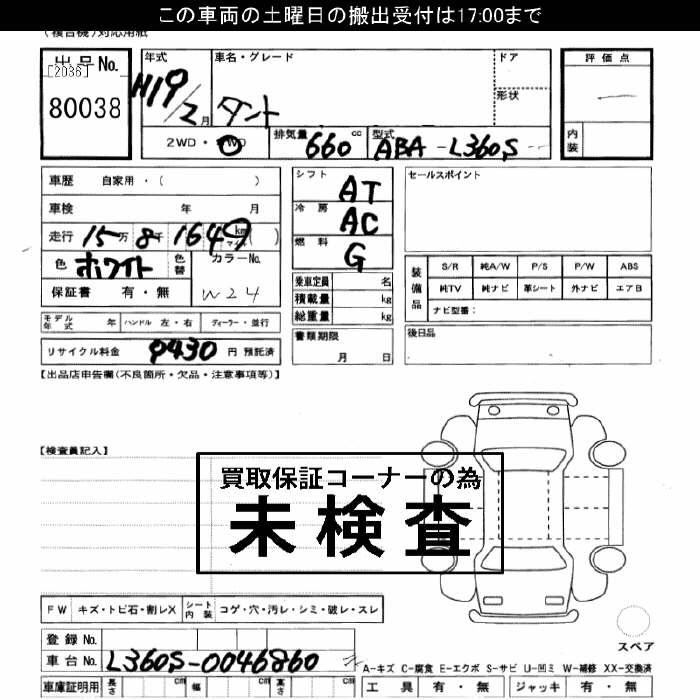 この車両の土曜日の搬出受付は17:00まで
(複合機)対応用紙
出品No.
[2036]
80038
年式 車名・グレード ドア 評価点
H19/2月 タント 形状 —
内装
2WD・4WD 排気量 660 cc 型式 ABA-L360S
車歴 自家用・( )
車検 年 月
走行 15万8千1649 km マイル ( )
色 ホワイト 色替 カラーNo.
保証書 有・無 W24
モデル年式 年 ハンドル 左・右 ディーラー・並行
リサイクル料金 9430 円 預託済
シフト AT
冷房 AC
燃料 G
乗車定員 名
積載量 kg
総重量 kg
書類期限
月 日
セールスポイント
装備品 S/R 純A/W P/S P/W ABS
純TV 純ナビ 革シート 外ナビ エアB
ナビ型番:
後日品
【出品店申告欄(不良箇所・欠品・注意事項等)】
【検査員記入】
買取保証コーナーの為
未検査
FW キズ・トビ石・割レX シート内装 コゲ・穴・汚レ・シミ・破レ・スレ
スペア
登録No.
車台No. L360S-0046860
A-キズ C-腐食 E-エクボ S-サビ U-凹ミ W-補修 XX-交換済
車庫証明用 長さ cm 幅 cm 高さ cm 工具 有・無 ジャッキ 有・無